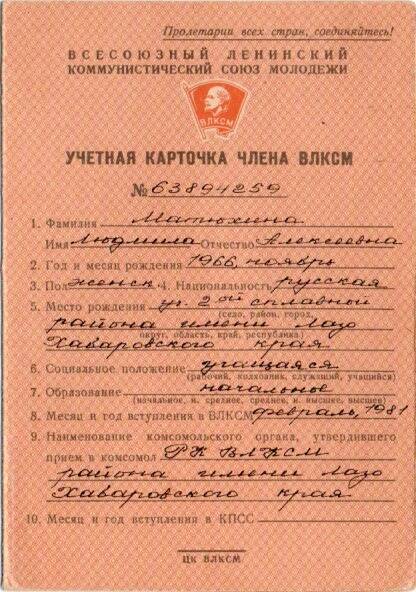 Пролетарии всех стран, соединяйтесь!
ВСЕСОЮЗНЫЙ ЛЕНИНСКИЙ
КОММУНИСТИЧЕСКИЙ СОЮЗ МОЛОДЕЖИ
ВЛКСМ
УЧЕТНАЯ КАРТОЧКА ЧЛЕНА ВЛКСМ
№ 63894259
1. Фамилия Матюхина
Имя Людмила Отчество Алексеевна
2. Год и месяц рождения 1966, ноябрь
3. Пол женск 4. Национальность русская
5. Место рождения уч. 2ой сплавной
(село, район, город,
района имени Лазо
округ, область, край, республика)
Хабаровского края
6. Социальное положение учащаяся
(рабочий, колхозник, служащий, учащийся)
7. Образование начальное
(начальное, н. среднее, среднее, н. высшее, высшее)
8. Месяц и год вступления в ВЛКСМ февраль, 1981
9. Наименование комсомольского органа, утвердившего
прием в комсомол РК ВЛКСМ
района имени Лазо
Хабаровского края
10. Месяц и год вступления в КПСС
ЦК ВЛКСМ